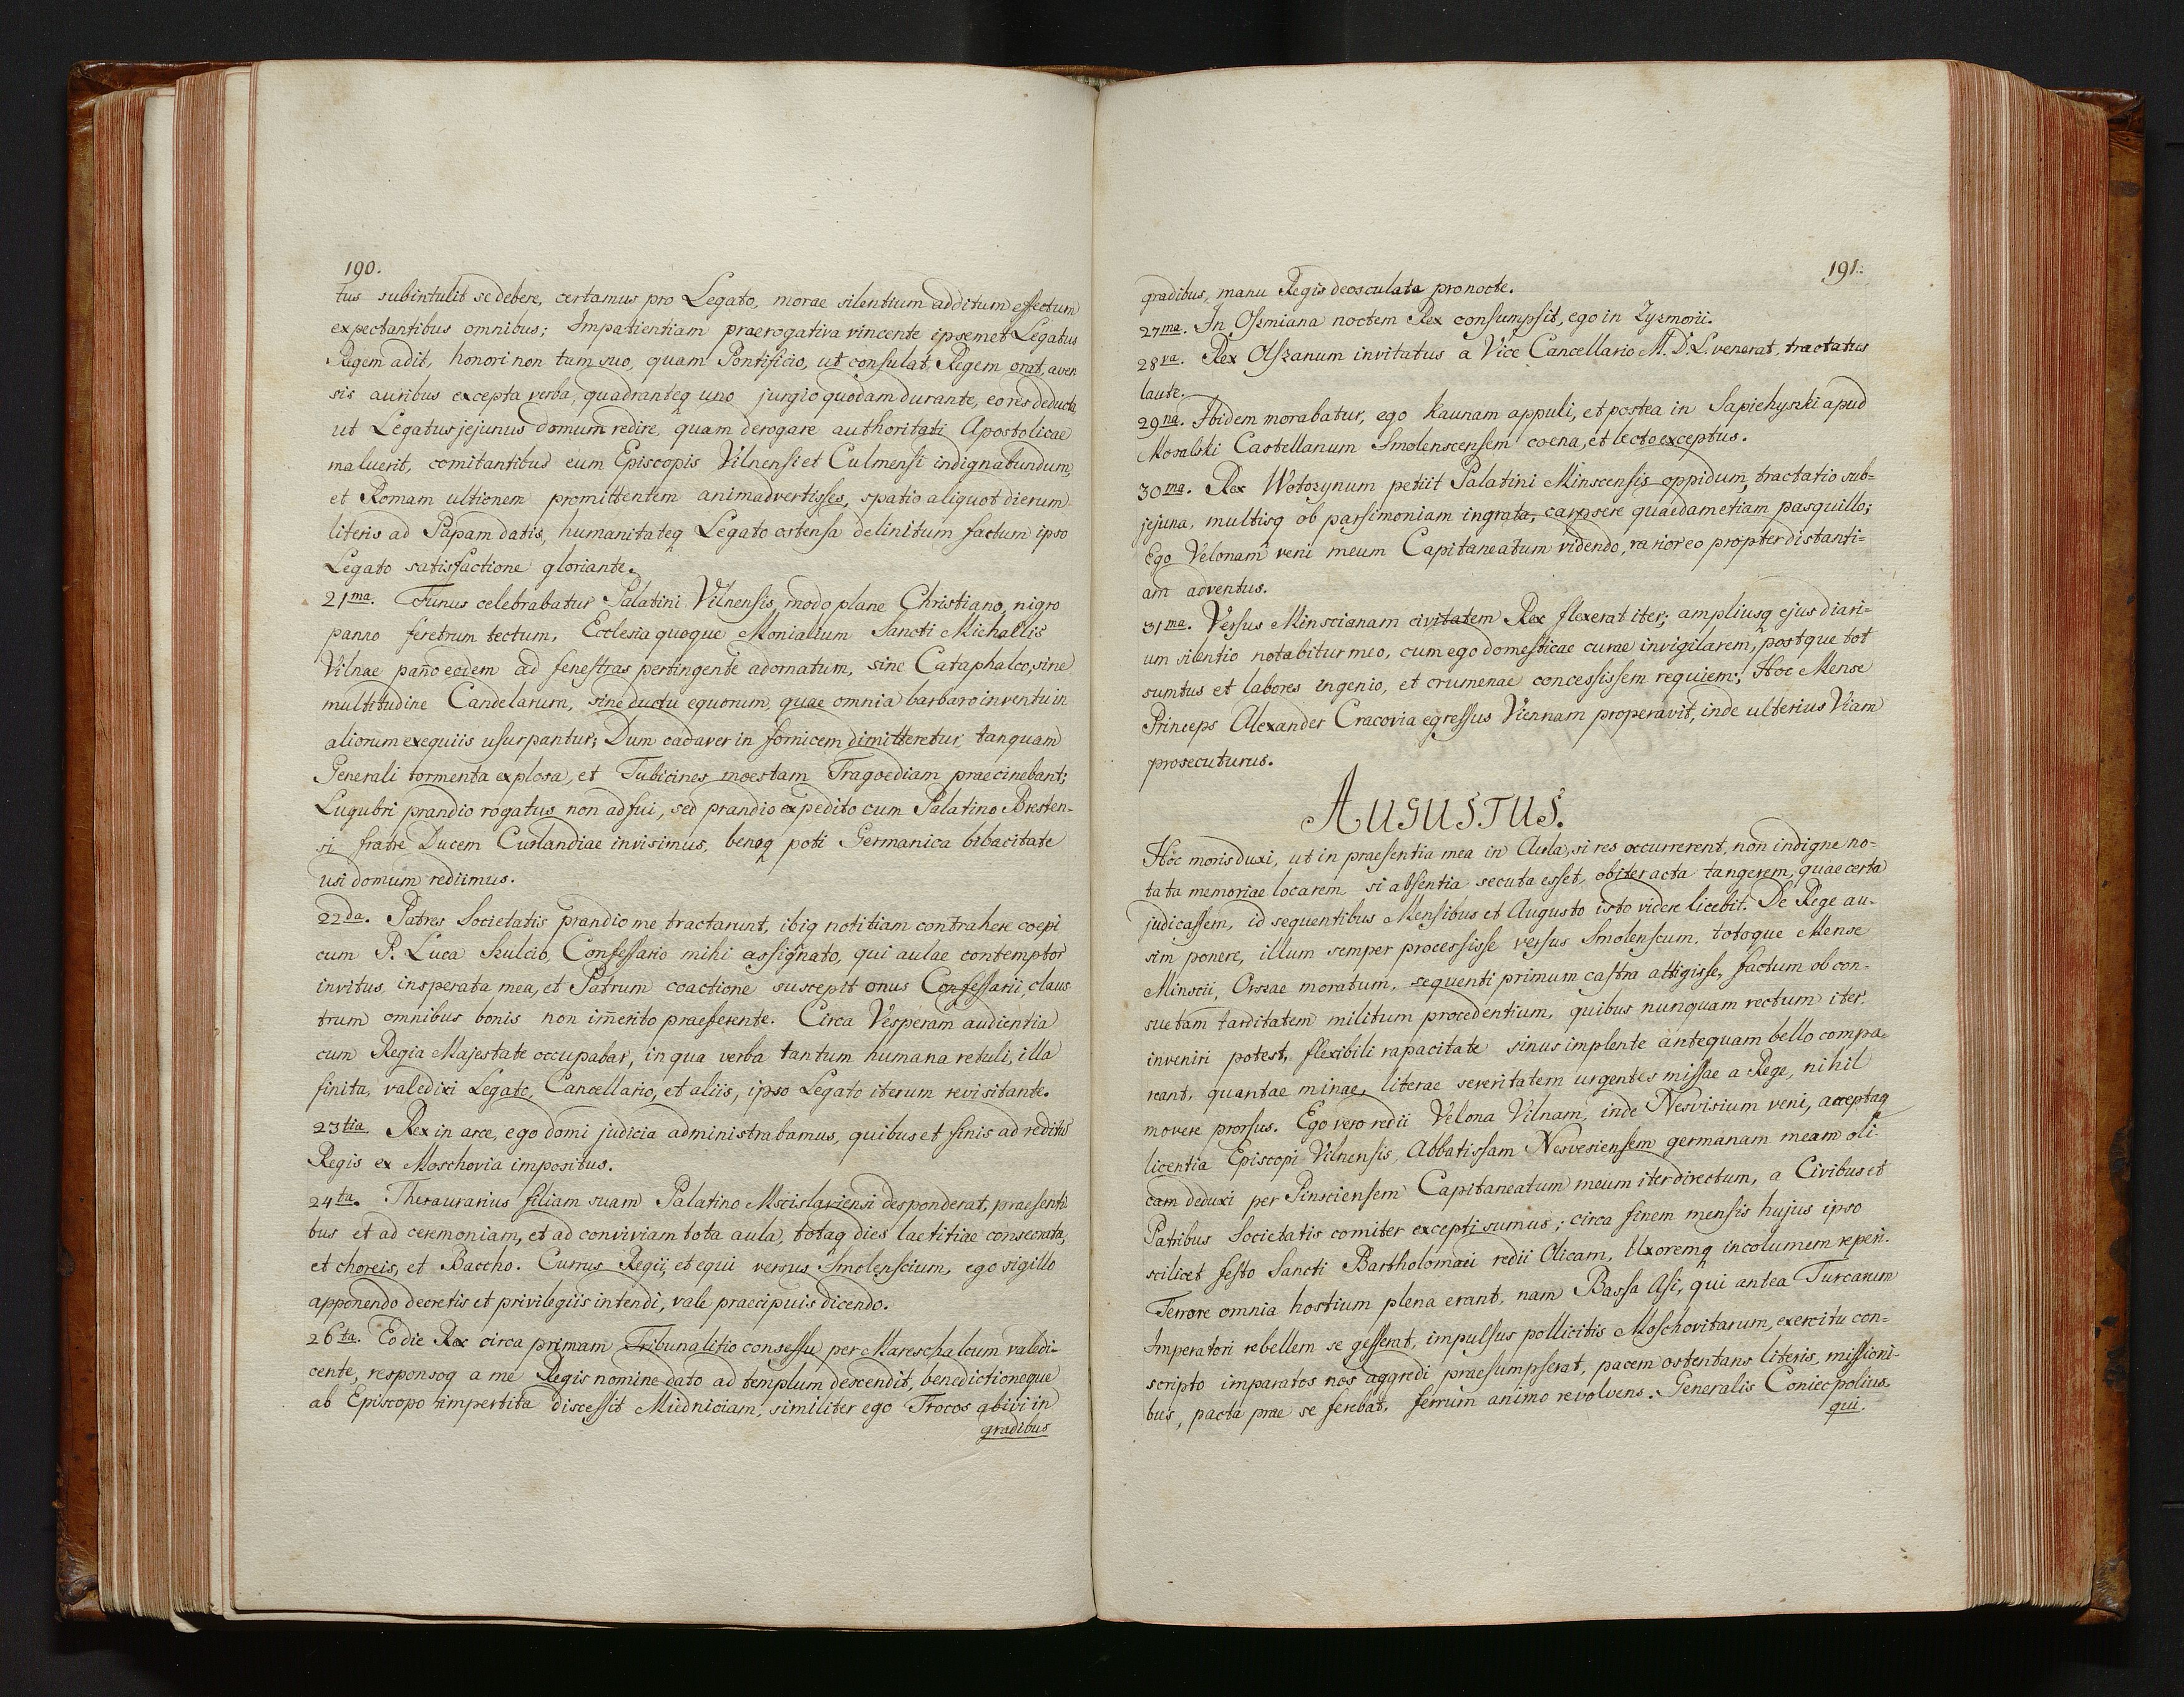 190.
tus subintulit se debere, certamus pro Legato, morae silentium additum effectum
expectantibus omnibus; Impatientiam praerogativa vincente ipsemet Legatus
Regem adit, honori non tam suo, quam Pontificio, ut consulat, Regem orat, aver
sis auribus excepta verba, quadranteq uno jurgio quodam durante, eo res deducta
ut Legatus jejunus domum redire, quam derogare authoritati Apostolicae
maluerit, comitantibus eum Episcopis Vilnensi et Culmensi indignabundum,
et Romam ultionem promittentem animadvertisses, spatio aliquot dierum
literis ad Papam datis, humanitateq Legato ostensa delinitum factum ipso
Legato satisfactione gloriante.
21ma. Funus celebrabatur Palatini Vilnensis, modo plane Christiano, nigro
panno feretrum tectum, Ecclesia quoque Monialium Sancti Michallis
Vilnae pan̄o eodem ad fenestras pertingente adornatum, sine Cataphalco, sine
multitudine Candelarum, sine ductu equorum, quae omnia barbaro inventu in
aliorum exequiis usurpantur; Dum cadaver in fornicem dimitteretur, tanquam
Generali tormenta explosa, et Tubicines moestam Tragoediam praecinebant;
Lugubri prandio rogatus non adfui, sed prandio expedito cum Palatino Bresten-
si fratre Ducem Curlandiae invisimus, beneq poti Germanica bibacitate
usi domum rediimus.
22da. Patres Societatis prandio me tractarunt, ibiq notitiam contrahere coepi
cum P. Luca Szulcio, Confessario mihi assignato, qui aulae contemptor
invitus, insperata mea, et Patrum coactione suscepit onus Confessarii, claus
trum omnibus bonis non im̄erito praeferente. Circa Vesperam audientia
cum Regia Majestate occupabar, in qua verba tantum humana retuli, illa
finita, valedixi Legato, Cancellario, et aliis, ipso Legato iterum revisitante.
23tia. Rex in arce, ego domi judicia administrabamus, quibus et finis ad reditu
Regis ex Moschovia impositus.
24ta. Thesaurarius filiam suam Palatino Mscislaviensi desponderat, praesenti
bus et ad ceremoniam, et ad conviviam tota aula, totaq dies laetitiae consecrata,
et choreis, et Baccho. Currus Regii, et equi versus Smolenscium, ego sigillo
apponendo decretis et privilegiis intendi, vale praecipuis dicendo.
26ta. Eo die Rex circa primam Tribunalitio consessu per Mareschalcum valedi-
cente, responsoq a me Regis nomine dato ad templum descendit, benedictioneque
ab Episcopo impertita discessit Miedniciam, similiter ego Trocos abivi in
gradibus
191.
gradibus, manu Regis deosculata pro nocte.
27ma. In Oszmiana noctem Rex consumpsit, ego in Zyzmorii.
28va. Rex Olszanum invitatus a Vice Cancellario M. D. L. venerat, tractatus
laute.
29na. Ibidem morabatur, ego Kaunam appuli, et postea in Sapiehyszki apud
Mosalski Castellanum Smolenscensem coena, et lecto exceptus.
30ma. Rex Wolozynum petiit Palatini Minscensis oppidum, tractatio sub-
jejuna, multisq ob parsimoniam ingrata, carpsere quaedam etiam pasquillo;
Ego Velonam veni meum Capitaneatum videndo, rarior eo propter distanti-
am adventus.
31ma. Versus Minscianam civitatem Rex flexerat iter; ampliusq ejus diari-
um silentio notabitur meo, cum ego domesticae curae invigilarem, postque tot
sumtus et labores ingenio, et crumenae concessissem requiem; Hoc Mense
Princeps Alexander Cracovia egressus Viennam properavit, inde ulterius Viam
prosecuturus.
AUGUSTUS.
Hoc moris duxi, ut in praesentia mea in Aula, si res occurrerent, non indigne no-
tata memoriae locarem si absentia secuta esset, obiter acta tangerem, quae certa
judicassem, id sequentibus Mensibus et Augusto isto videre licebit. De Rege au-
sim ponere, illum semper processisse versus Smolenscum, totoque Mense
Minscii, Orszae moratum, sequenti primum castra attigisse, factum ob con-
suetam tarditatem militum procedentium, quibus nunquam rectum iter,
inveniri potest, flexibili rapacitate sinus implente antequam bello compa-
reant, quantae minae, literae severitatem urgentes missae a Rege, nihil
movere prorsus. Ego vero redii Velona Vilnam, inde Nesvisium veni, acceptaq
licentia Episcopi Vilnensis, Abbatissam Nesvesiensem germanam meam Oli-
cam deduxi per Pinsciensem Capitaneatum meum iter directum, a Civibus et
Patribus Societatis comiter excepti sumus; circa finem mensis hujus ipso
scilicet festo Sancti Bartholomaei redii Olicam, Uxoremq incolumem reperi.
Terrore omnia hostium plena erant, nam Bassa Asi, qui antea Turcarum
Imperatori rebellem se gesserat, impulsus pollicitis Moschovitarum, exercitu con-
scripto imparatos nos aggredi praesumpserat, pacem ostentans literis, missioni-
bus, pacta prae se ferebat, ferrum animo revolvens. Generalis Coniecpolius
qui.